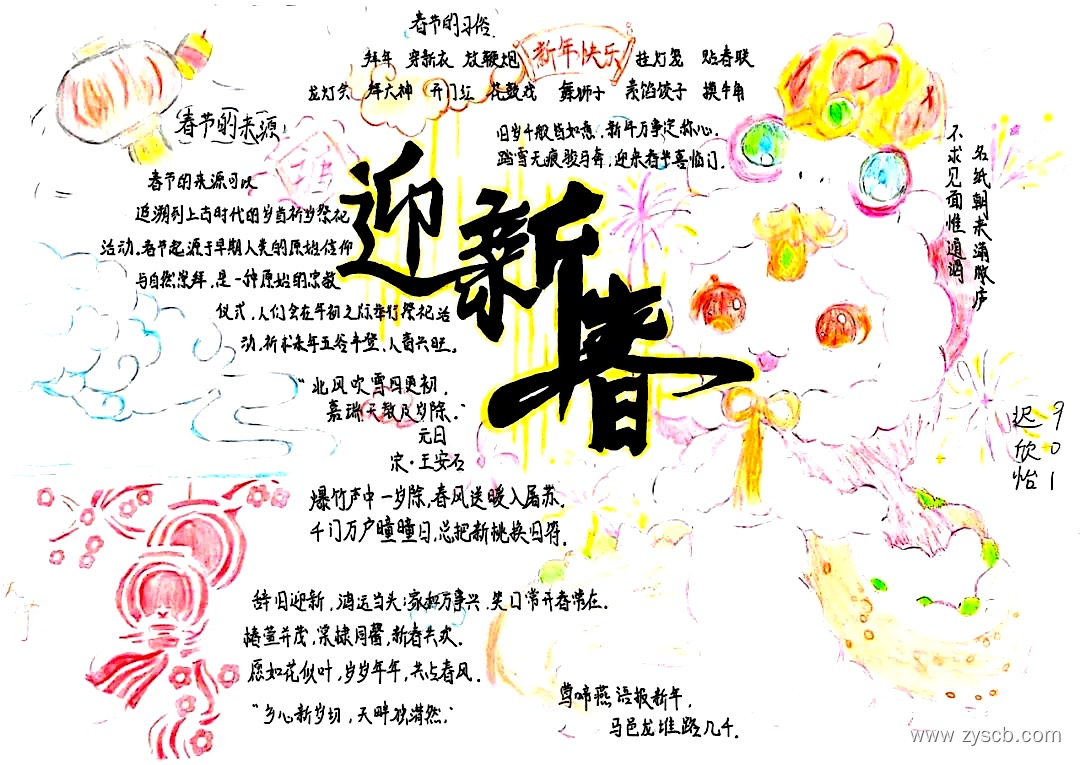 春节的习俗
拜年 穿新衣 放鞭炮 挂灯笼 贴春联
新年快乐
龙灯会 拜大神 开门红 花鼓戏 舞狮子 煮馅饺子 换牛角
旧岁千般皆如意,新年万事定称心。
踏雪无痕骏马奔,迎来春节喜临门。
春节的来源
春节的来源可以
追溯到上古时代的岁首祈岁祭祀
活动。春节起源于早期人类的原始信仰
与自然崇拜,是一种原始的宗教
仪式,人们会在年初之际举行祭祀活
动,祈求来年五谷丰登、人畜兴旺。
迎新春
不求见面惟通谒
名纸朝来满敝庐
“北风吹雪四更初,
嘉瑞天教及岁除。”
元日
宋·王安石
爆竹声中一岁除,春风送暖入屠苏。
千门万户曈曈日,总把新桃换旧符。
辞旧迎新,鸿运当头;家和万事兴,笑口常开春常在。
椿萱并茂,棠棣同馨,新春共欢。
愿如花似叶,岁岁年年,共占春风。
“乡心新岁切,天畔独潸然。”
莺啼燕语报新年,
马邑龙堆路几千。
901
迟欣怡
www.zyscb.com